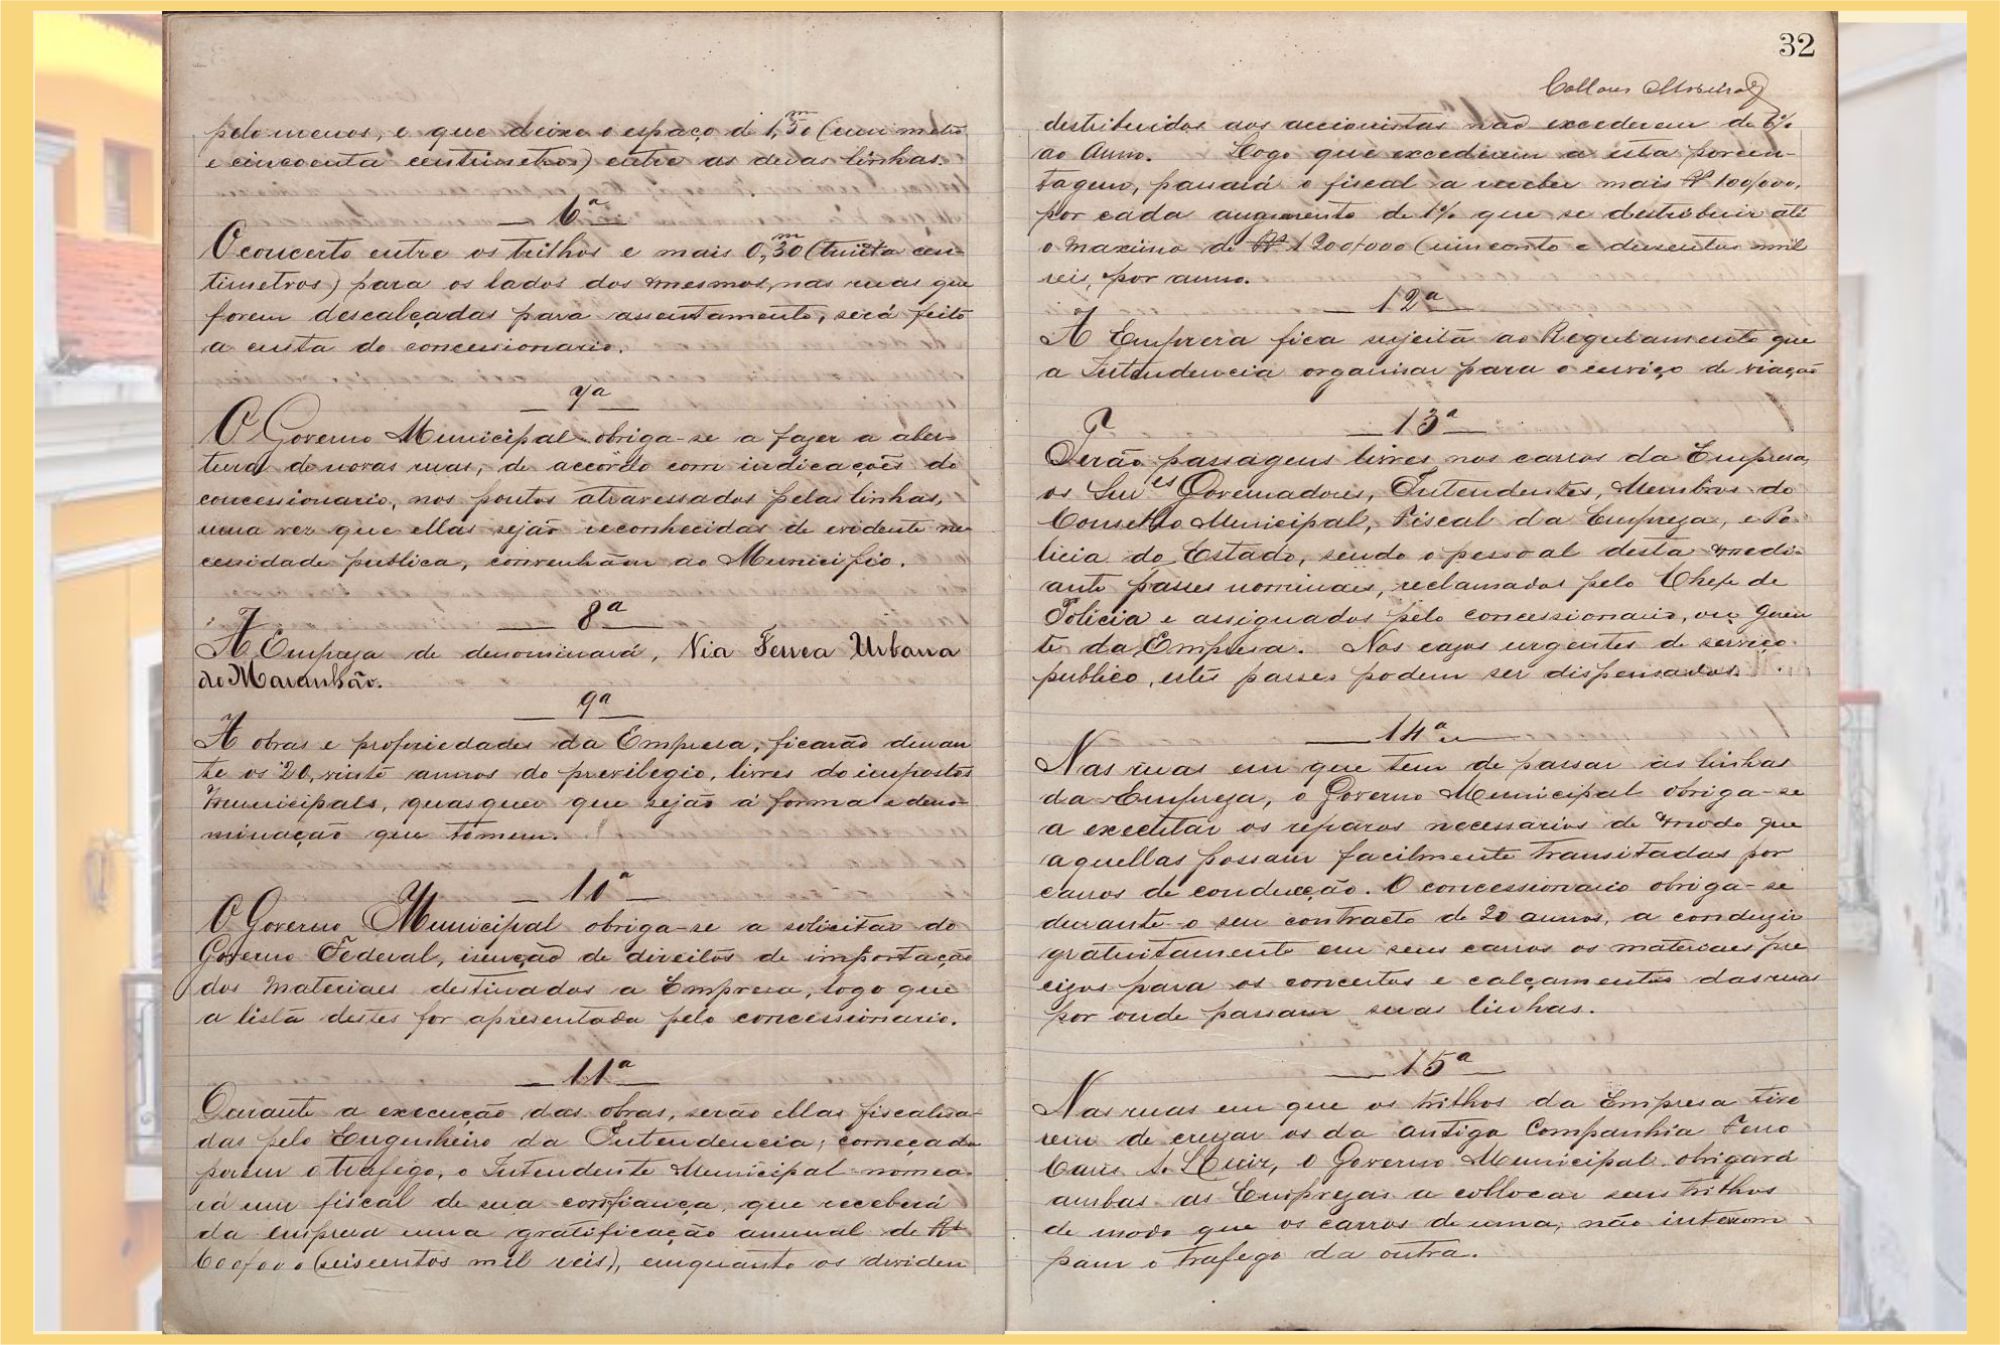 pelo menos, e que deixe o espaço de 1,50 m (um metro
e cincoenta centimetros) entre as duas linhas.
6ª
O concerto entre os trilhos e mais 0,30 m (trinta cen-
timetros) para os lados dos mesmos, nas ruas que
forem descalçadas para assentamento, será feito
a custa do concessionario.
7ª
O Governo Municipal obriga-se a fazer a aber-
tura de novas ruas, de accôrdo com indicações do
concessionario, nos pontos atravessados pelas linhas,
uma vez que ellas sejão reconhecidas de evidente ne
cessidade publica, convenhão ao Municipio.
8ª
A Empreza de denominará, Via Ferrea Urbana
do Maranhão.
9ª
A obras e propriedades da Empresa, ficarão duran
te os 20, vinte annos do previlegio, livres do impostos
municipaes, quaesquer que sejão a forma e deno-
minação que tomem.
10ª
O Governo Municipal obriga-se a solicitar do
Governo Federal, isenção de direitos de importação
dos materiaes destinados a Empresa, logo que
a lista destes for apresentada pelo concessionario.
11ª
Durante a execução das obras, serão ellas fiscalisa-
das pelo Engenheiro da Intendencia; começado
porem o trafego, o Intendente Municipal nomea-
rá um fiscal de sua confiança, que receberá
da empresa uma gratificação annual de Rs
600/000 (seiscentos mil reis), emquanto os dividen
32
distribuidos aos accionistas não excederem de 6%
ao Anno. Logo que excederem a esta porcen-
tagem, passará o fiscal a receber mais Rs 100/000,
por cada augmento de 1% que se distribuir até
o maximo de Rs 1200/000 (um conto e duzentos mil
reis, por anno.
12ª
A Empresa fica sujeita ao Regulamento que
a Intendencia organisar para o serviço de viação
13ª
Terão passagens livres nos carros da Empresa,
os Snrs Governadores, Intendentes, Membros do
Conselho Municipal, Fiscal da Empreza, e Po-
licia do Estado, sendo o pessoal desta medi-
ante passes nominaes, reclamados pelo Chefe de
Policia e assignados pelo concessionario, ou geren
te da Empresa. Nos cazos urgentes de serviço
publico, estes passes podem ser dispensados.
14ª
Nas ruas em que tem de passar as linhas
da Empreza, o Governo Municipal obriga-se
a executar os reparos necessarios de modo que
aquellas possam facilmente transitadas por
carros de conducção. O concessionario obriga-se
durante o seu contracto de 20 annos, a conduzir
gratuitamente em seus carros os materiaes pre
cizos para os concertos e calçamentos das ruas
por onde passam suas linhas.
15ª
Nas ruas em que os trilhos da Empresa tive
rem de cruzar os da antiga Companhia Ferro
Carris S. Luiz, o Governo Municipal obrigará
ambas as Emprezas a collocar seus trilhos
de modo que os carros de uma, não interrom
pam o trafego da outra.